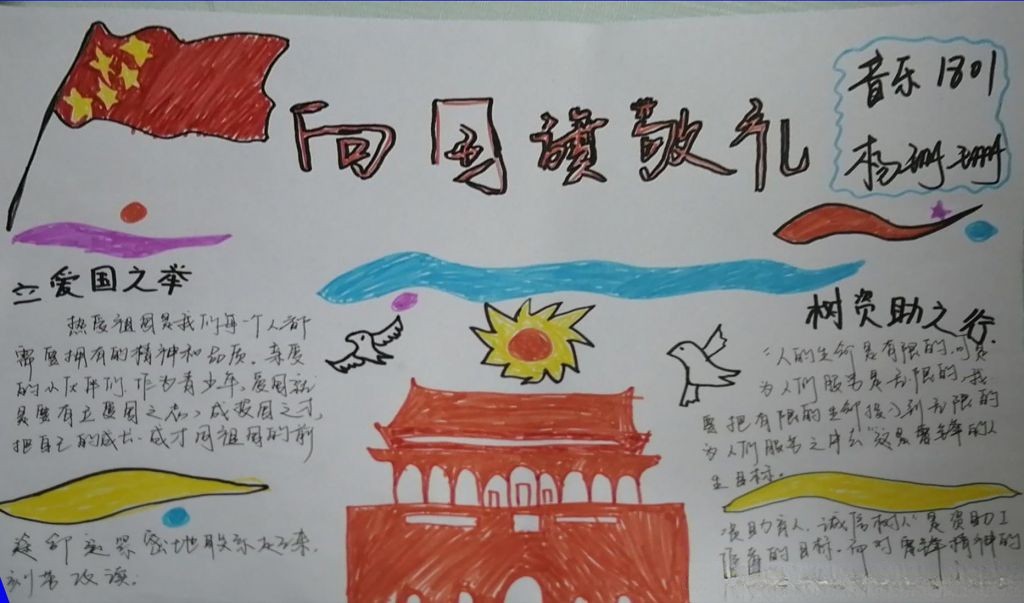 向国旗敬礼
音乐1801
杨珊珊
立爱国之举
热爱祖国是我们每一个人都
需要拥有的精神和品质.亲爱
的小伙伴们,作为青少年,爱国就
是要有立爱国之志、成报国之才,
把自己的成长.成才同祖国的前
途命运紧密地联系起来.
刻苦攻读.
树资助之行
"人的生命是有限的.可是
为人们服务是无限的,我
要把有限的生命投入到无限的
为人们服务之中去"这是雷锋的人
生目标.
资助育人,诚信树人"是资助工
的目标.雷锋精神的